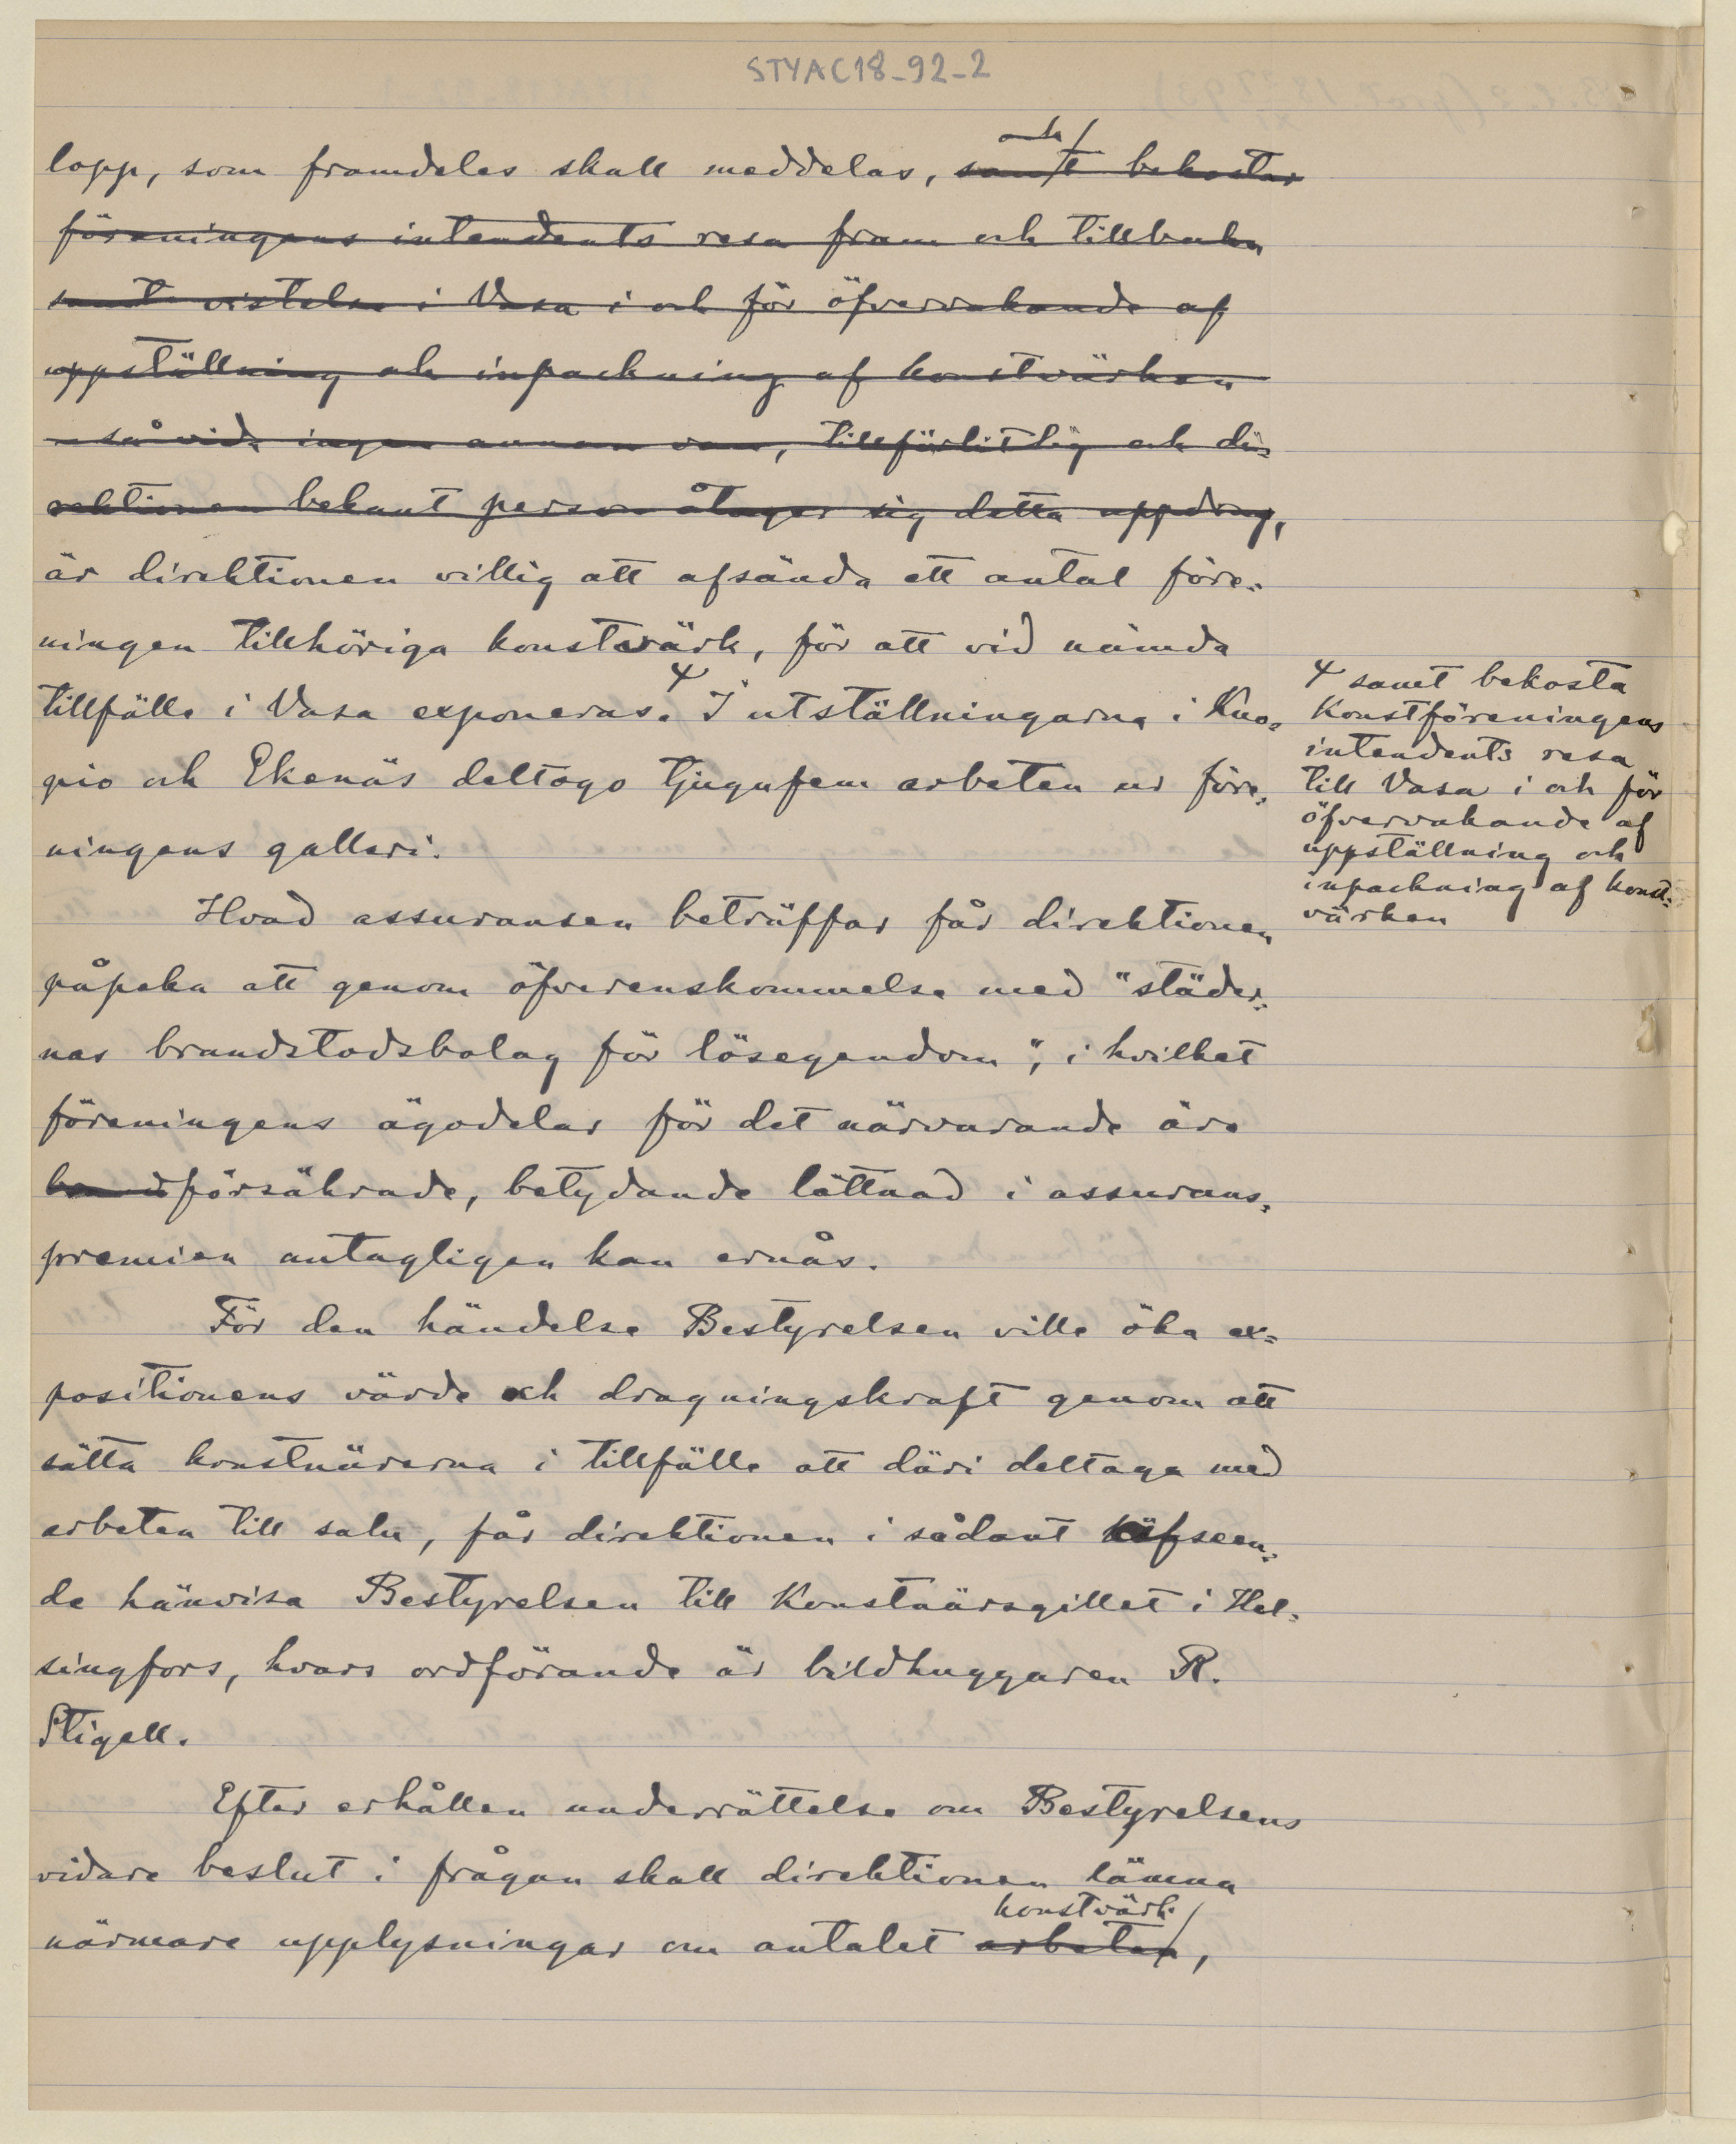 STYAC18-92-2
och
lopp, som framdeles skall meddelas, samt bekostar
föreningens intendents resa fram och tillbaka
samt vistelse i Vasa i och för öfvervakande af
uppställning och inpackning af konstvärken
– så vida ingen annan van, tillförlitlig och di-
rektionen bekant person åtager sig detta uppdrag,
är direktionen villig att afsända ett antal före-
ningen tillhöriga konstvärk, för att vid nämda
tillfälle i Vasa exponeras. I utställningarna i Kuo-
pio och Ekenäs deltogo tjugufem arbeten ur före-
ningens galleri.
+ samt bekosta
Konstföreningens
intendents resa
till Vasa i och för
öfvervakande af
uppställning och
inpackning af konst-
värken
Hvad assuransen beträffar får direktionen
påpeka att genom öfverenskommelse med "städer-
nas brandstodsbolag för lösegendom", i hvilket
föreningens ägodelar för det närvarande äro
brandförsäkrade, betydande lättnad i assurans-
premien antagligen kan ernås.
För den händelse Bestyrelsen ville öka ex-
positionens värde och dragningskraft genom att
sätta konstnärerna i tillfälle att däri deltaga med
arbeten till salu, får direktionen i sådant afseen-
de hänvisa Bestyrelsen till Konstnärsgillet i Hel-
singfors, hvars ordförande är bildhuggaren R.
Stigell.
Efter erhållen underrättelse om Bestyrelsens
vidare beslut i frågan skall direktionen lämna
konstvärk
närmare upplysningar om antalet arbeten,